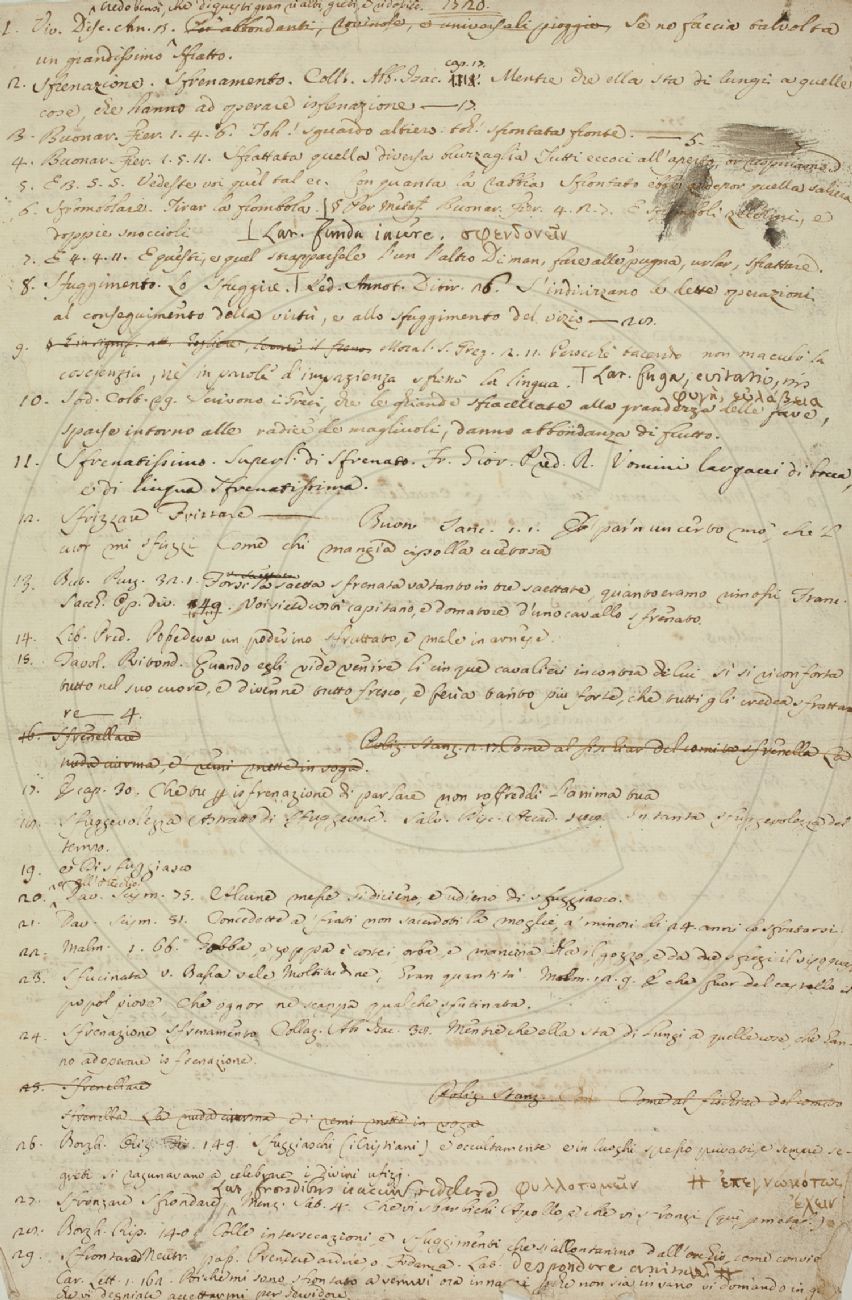 credo bensì, che di questi gran
1. Viv. Disc. Arn. 15. abbondanti, rovinose, e universali piogge, se no faccia talvolta
un grandissimo sfratto.
2. Sfrenazione. Sfrenamento. Coll. Ab. Isac. cap. 17. Mentre che ella sta di lungi a quelle
cose, che hanno ad operare isfrenazione
3. Buonar. Fier. 1. 4. 6. Toh! sguardo altiero. toh! sfrontata fronte. 5.
4. Buonar. Fier. 1. 5. 11. Sfrattata quella diversa Tutti eccoci all'aperto,
5. E 3. 5. 5. Vedeste voi quel tal ec. Con quanta la rabbia sfrontato
6. Sfrombolare. Tirar la frombola. Buonar. Fier. 4. 2. 7. E
doppie snoccioli Lat. funda iacere. σφενδονεῖν
7. E 4. 4. 11. E questi, e quel l'un l'altro Di man, fare alle pugna, urtar, sfrattare.
8. Sfuggimento. Lo sfuggire. Red. Annot. Ditir. 26. S'indirizzano le dette operazioni
al conseguimento della virtù, e allo sfuggimento del vizio
9. Moral. S. Greg. 2. 11. Perocchè tacendo non maculò la
coscienzia, nè in parole d'impazienza sfrenò la lingua. Lat. fuga, evitatio, nis
φυγὴ, εὐλάβεια
10. Sod. Colt. 29. Scrivono i Greci, che le ghiande sfracellate alla grandezza delle fave,
sparse intorno alle radici de magliuoli, danno abbondanza di frutto.
11. Sfrenatissimo. Superl. di Sfrenato. Fr. Gior. Pred. R. Uomini largacci di bocca,
e di lingua sfrenatissima.
12. Sfrizzare Frizzare Buon. Tanc. 1. 1. par'n un cerbio mò, che 'l
cuor mi sfrizzi Come chi mangia cipolla
13. But. Purg. 32. 1. Forse saetta sfrenata va tanto in tre saettate, quanto eramo rimossi Franc.
Sacch. Op. div. 149. Voi siete capitano, e domatore d'uno cavallo sfrenato.
14. Lib. Pred. Possedeva un poderino sfruttato, e male in arnese.
15. Tavol. Ritond. Quando egli vide venire li cinque cavalieri incontra di lui, si si riconforta
tutto nel suo cuore, e divenne tutto fresco, e feria tanto più forte, che tutti gli credea sfrattare
re 4.
16. Sfrenellare Poliz. Stanz. 2. 17. Come al fischiar del comito sfrenella La
nuda ciurma, e i remi mette in voga.
17. E cap. 30. Che tu p isfrenazione di parlare non raffreddi l'anima tua
18. Sfuggevolezza Astratto di Sfuggevole. Salv. Disc. Accad. In tanta sfuggevolezza del
tempo.
19. e di sfuggiasco
20. Dav. Scism. 75. Alcune messe si dicieno, e udieno di sfuggiasco.
21. Dav. Scism. 81. Concedette a' frati non sacerdoti la moglie, a' minori di 24. anni lo sfratarsi.
22. Malm. 1. 66. Gobba, e zoppa è costei orba, e mancina Ha il gozzo, e da due sfregi il viso guasto
23. Sfucinata v. Bassa vale Moltitudine, Gran quantità Malm. 12. 9. E che fuor del castello
popol piove Che ognor ne scappa qualche sfucinata.
24. Sfrenazione Sfrenamento Collaz. Ab. Isac. 38. Mentre che ella sta di lungi a quelle cose, che han-
no adoperare isfrenazione.
25. Sfrenellare Poliz. Stanz. Come al fischiar del comito
sfrenella La nuda ciurma e i remi mette in voga
26. Borgh. 149. Sfuggiaschi (i Cristiani) e occultamente e in luoghi spesso privati, e sempre se-
greti si ragunavano a celebrare i Divini ufizj.
Lat. frondibus φυλλοτομεῖν # ἐπεγνωκότως
ἔχειν
27. Sfronzare Sfrondare Menz. Sat. 4. Che vi scarichi Apollo, e che vi sfronzi (qui p metaf.)
28. Borgh. Rip. 140. Colle intersecazioni e sfuggimenti che si allontanino dall'occhio, come convie
29. Sfrontare Neutr. pass. Prendere ardire o fidanza. Lat. despondere animum #
Car. Lett. 1. 162. Poichè mi sono sfrontato a scrivervi ora innanzi perchè non sia invano vi domando in gr
che vi degniate accettarmi per servidore